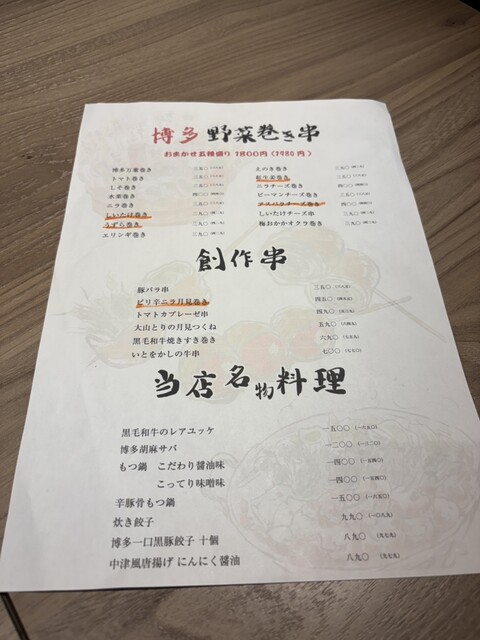 博多 野菜巻き串
おまかせ五種盛り 1800円(1980円)
博多万能巻き
トマト巻き 三五〇
しそ巻き 三五〇
水菜巻き 四〇〇
ニラ巻き 三五〇
しいたけ巻き 三九〇
うずら巻き 三九〇
エリンギ巻き 三九〇
えのき巻き 三五〇
紅生姜巻き 三五〇
ニラチーズ巻き 四〇〇
ピーマンチーズ巻き
アスパラチーズ巻き 四〇〇
しいたけチーズ串 三九〇
梅おかかオクラ巻き 三九〇
創作串
豚バラ串 三五〇
ピリ辛ニラ月見巻き 四五〇
トマトカプレーゼ串 四九〇
大山とりの月見つくね 五九〇
黒毛和牛焼きすき巻き 六九〇
いとをかしの牛串 七〇〇 (七七〇)
当店名物料理
黒毛和牛のレアユッケ 一五〇〇
博多胡麻サバ 一二〇〇 (一三二〇)
もつ鍋 こだわり醤油味 一四〇〇 (一五四〇)
こってり味噌味 一四〇〇 (一五四〇)
辛豚骨もつ鍋 一五〇〇 (一六五〇)
炊き餃子 九九〇
博多一口黒豚餃子 十個 八九〇 (九七九)
中津風唐揚げ にんにく醤油 八九〇 (九七九)